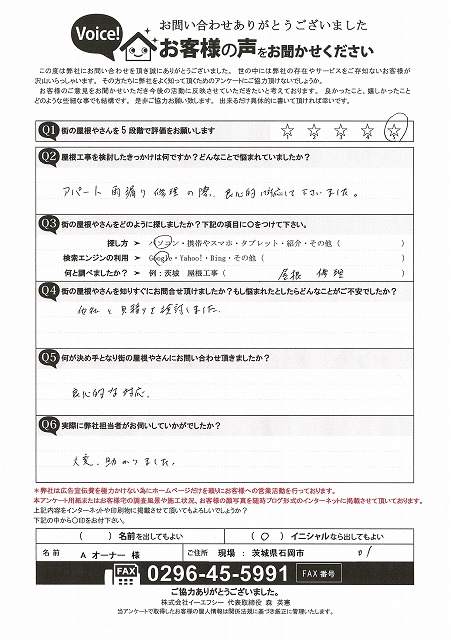 Voice!
お問い合わせありがとうございました
お客様の声をお聞かせください
この度は弊社にお問い合わせを頂き誠にありがとうございました。世の中には弊社の存在やサービスをご存知ないお客様が
沢山いらっしゃいます。その方たちに弊社をよく知って頂くためのアンケートにご協力頂けないでしょうか。
お客様のご意見をお聞かせいただき今後の活動に反映させていただきたいと考えております。良かったこと、嬉しかったこと
どのような些細な事でも結構です。是非ご協力お願い致します。出来るだけ具体的に書いて頂ければ幸いです。
Q1 街の屋根やさんを5段階で評価をお願いします
1 2 3 4 5
Q2 屋根工事を検討したきっかけは何ですか？どんなことで悩まれていましたか？
アパート雨漏り修理の際、良心的に対応して下さいました。
Q3 街の屋根やさんをどのように探しましたか？下記の項目に○をつけて下さい。
探し方 ➤ パソコン・携帯やスマホ・タブレット・紹介・その他（ ）
検索エンジンの利用 ➤ Google・Yahoo!・Bing・その他（ ）
何と調べましたか？ ➤ 例：茨城 屋根工事（ 屋根 修理 ）
Q4 街の屋根やさんを知りすぐにお問合せ頂けましたか？もし悩まれたとしたらどんなことがご不安でしたか？
他社と見積りを検討しました。
Q5 何が決め手となり街の屋根やさんにお問い合わせ頂きましたか？
良心的な対応。
Q6 実際に弊社担当者がお伺いしていかがでしたか？
大変、助かりました。
＊弊社は広告宣伝費を極力かけない為にホームページだけを頼りにお客様への営業活動を行っております。
＊アンケート用紙またはお客様宅の調査風景や施工状況、お客様の顔写真を随時ブログ形式のインターネットに掲載させて頂いております。
上記内容をインターネットや印刷物に掲載させて頂いてもよろしいでしょうか？
下記の中から○印をお付下さい。
（ ）名前を出してもよい （ ○ ）イニシャルなら出してもよい
名前 A オーナー 様 ご住所 現場：茨城県石岡市
FAX 0296-45-5991 FAX番号
ご協力ありがとうございました。
株式会社イーエフシー 代表取締役 森 英憲
当アンケートで取得したお客様の個人情報は関係法規に基づき厳正に管理いたします。